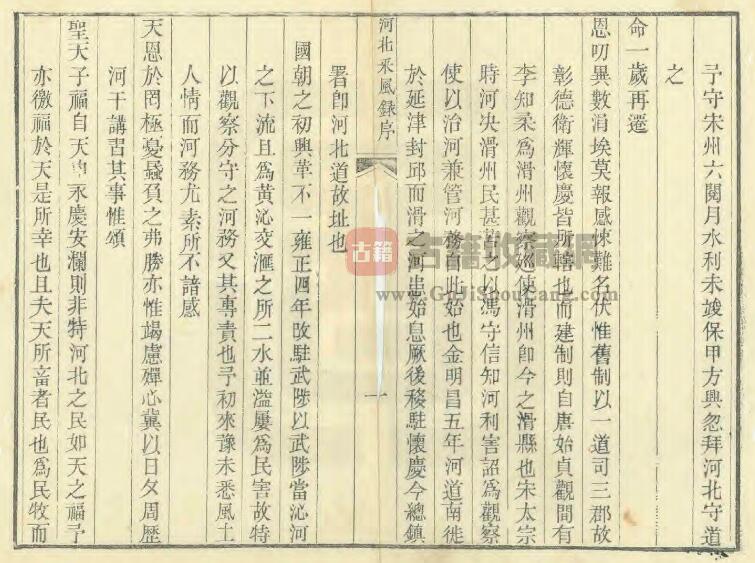 予守宋州六閱月水利未竣保甲方興忽拜河北守道
之
命一歲再遷
恩叨異數涓埃莫報感悚難名伏惟舊制以一道司三郡故
彰德衛輝懷慶皆所轄也而建制則自唐始貞觀間有
李知柔爲滑州觀察巡使滑州卽今之滑縣也宋太宗
時河決滑州民甚苦之以馮守信知河利害詔爲觀察
使以治河兼管河務自此始也金明昌五年河道南徙
於延津封邱而滑之河患始息厥後移駐懷慶今總鎮
河北采風錄序
一
署卽河北道故址也
國朝之初興革不一雍正四年改駐武陟以武陟當沁河
之下流且爲黃沁交滙之所二水並溢屢爲民害故特
以觀察分守之河務又其專責也予初來豫未悉風土
人情而河務尤素所不諳感
天恩於罔極憂蟁負之弗勝亦惟竭慮殫心冀以日夕周歷
河干講習其事惟頌
聖天子福自天申永慶安瀾則非特河北之民如天之福予
亦徼福於天是所幸也且夫天所畜者民也爲民牧而
古籍
古籍收藏网
www.GuJiShouCang.com